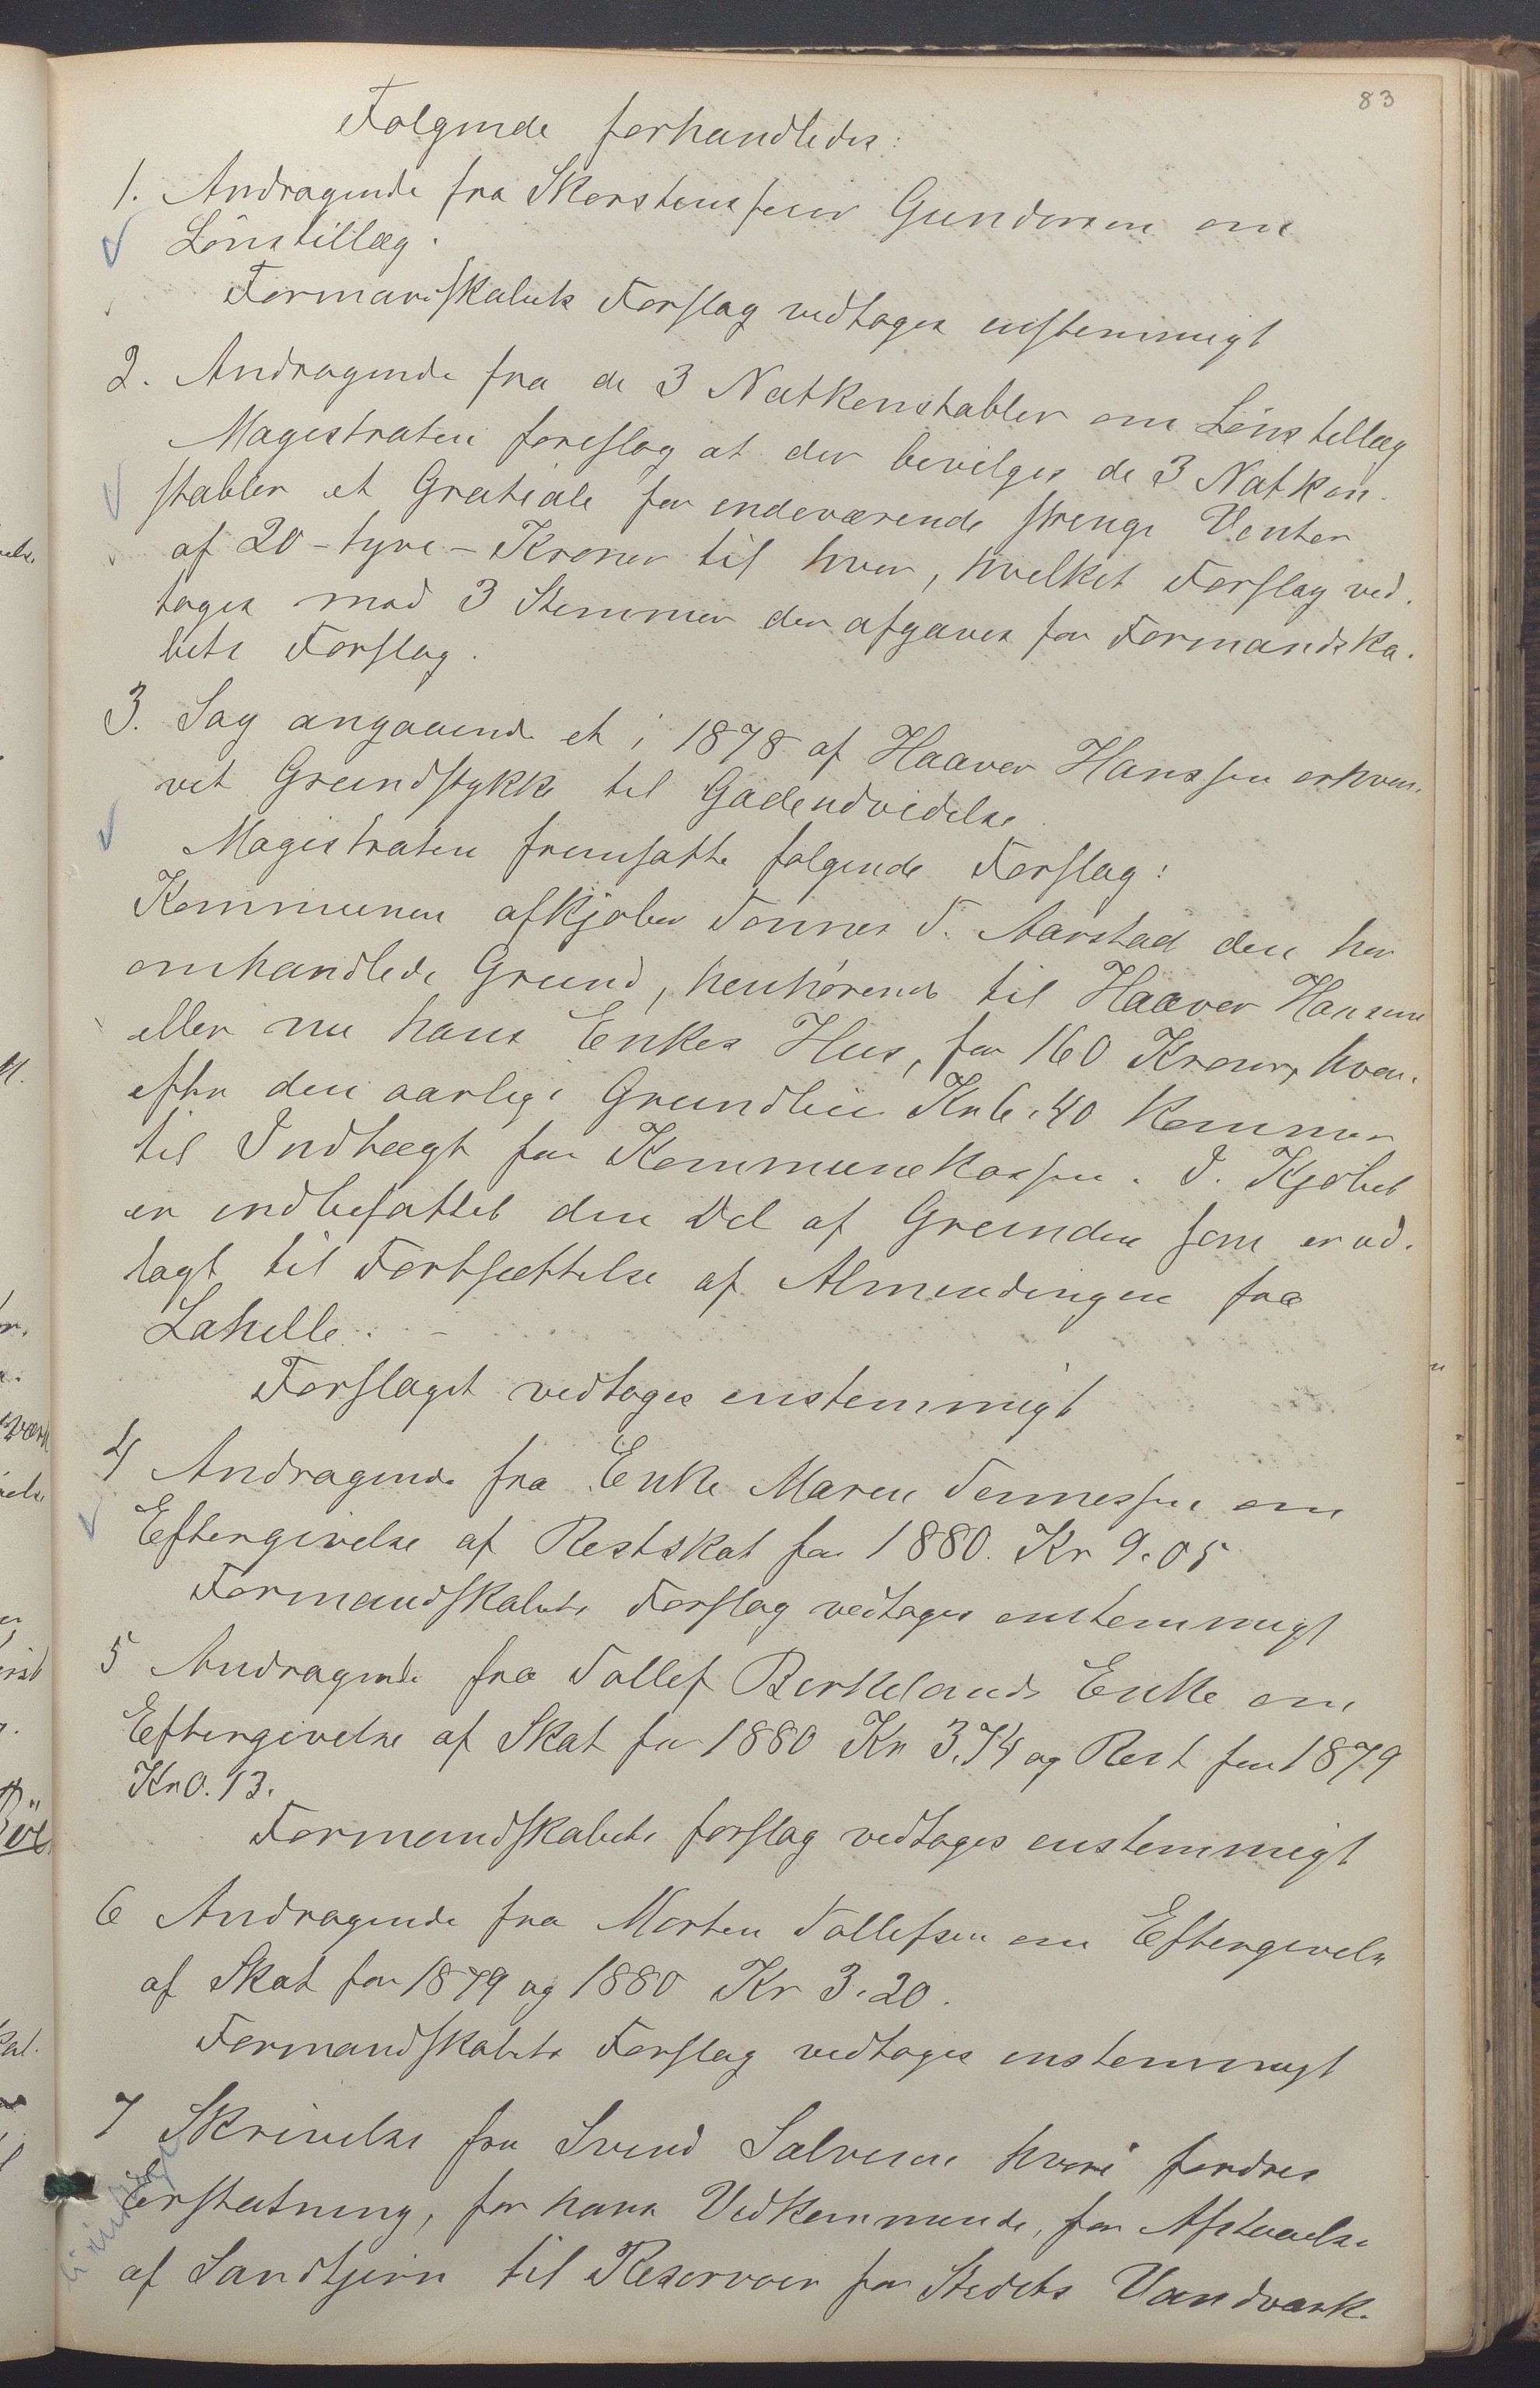 83
Følgende forhandledes:
1. Andragende fra Skorstensfeier Gundersen om
Lönstillæg.
Formandskabets Forslag vedtoges enstemmigt
2. Andragende fra de 3 Natkonstabler om Lönstillæg
Magistraten foreslog at der bevilges de 3 Natkon-
stabler et Gratiale for indeværende strenge Venter
af 20 - tyve - Kroner til hver, hvilket Forslag ved-
toges mod 3 Stemmer der afgaves for Formandska-
bets Forslag.
3. Sag angaaende et i 1878 af Haaver Hanssen erhver-
vet Grundstykke til Gadeudvidelse
Magistraten fremsatte følgende Forslag:
Kommunen afkjøber Tønnes T. Aarstad den her
omhandlede Grund, henhörende til Haaver Hansens
eller nu hans Enkes Hus, for 160 Kroner, hvor-
efter den aarlige Grundleie Kr 6.40 kommer
til Indtægt for Kommunekassen. I Kjøbet
er indbefattet den Del af Grunden som er ud-
lagt til Fortsættelse af Almendingen fra
Lahelle.
Forslaget vedtoges enstemmigt
4 Andragende fra Enke Maren Tønnessen om
Eftergivelse af Restskat for 1880. Kr 9.05
Formandskabets Forslag vedtoges enstemmigt
5 Andragende fra Tollef Birkelands Enke om
Eftergivelse af Skat for 1880 Kr 3.74 og Rest for 1879
Kr 0.13.
Formandskabets forslag vedtoges enstemmigt
6 Andragende fra Morten Tollefsen om Eftergivelse
af Skat for 1879 og 1880 Kr 3.20.
Formandskabets Forslag vedtoges enstemmigt
7 Skrivelse fra Svend Salvesen hvori fordres
Erstatning, for hans Vedkommende, for Afstaaelse
af Sandtjern til Reservoir for Stedets Vandværk.